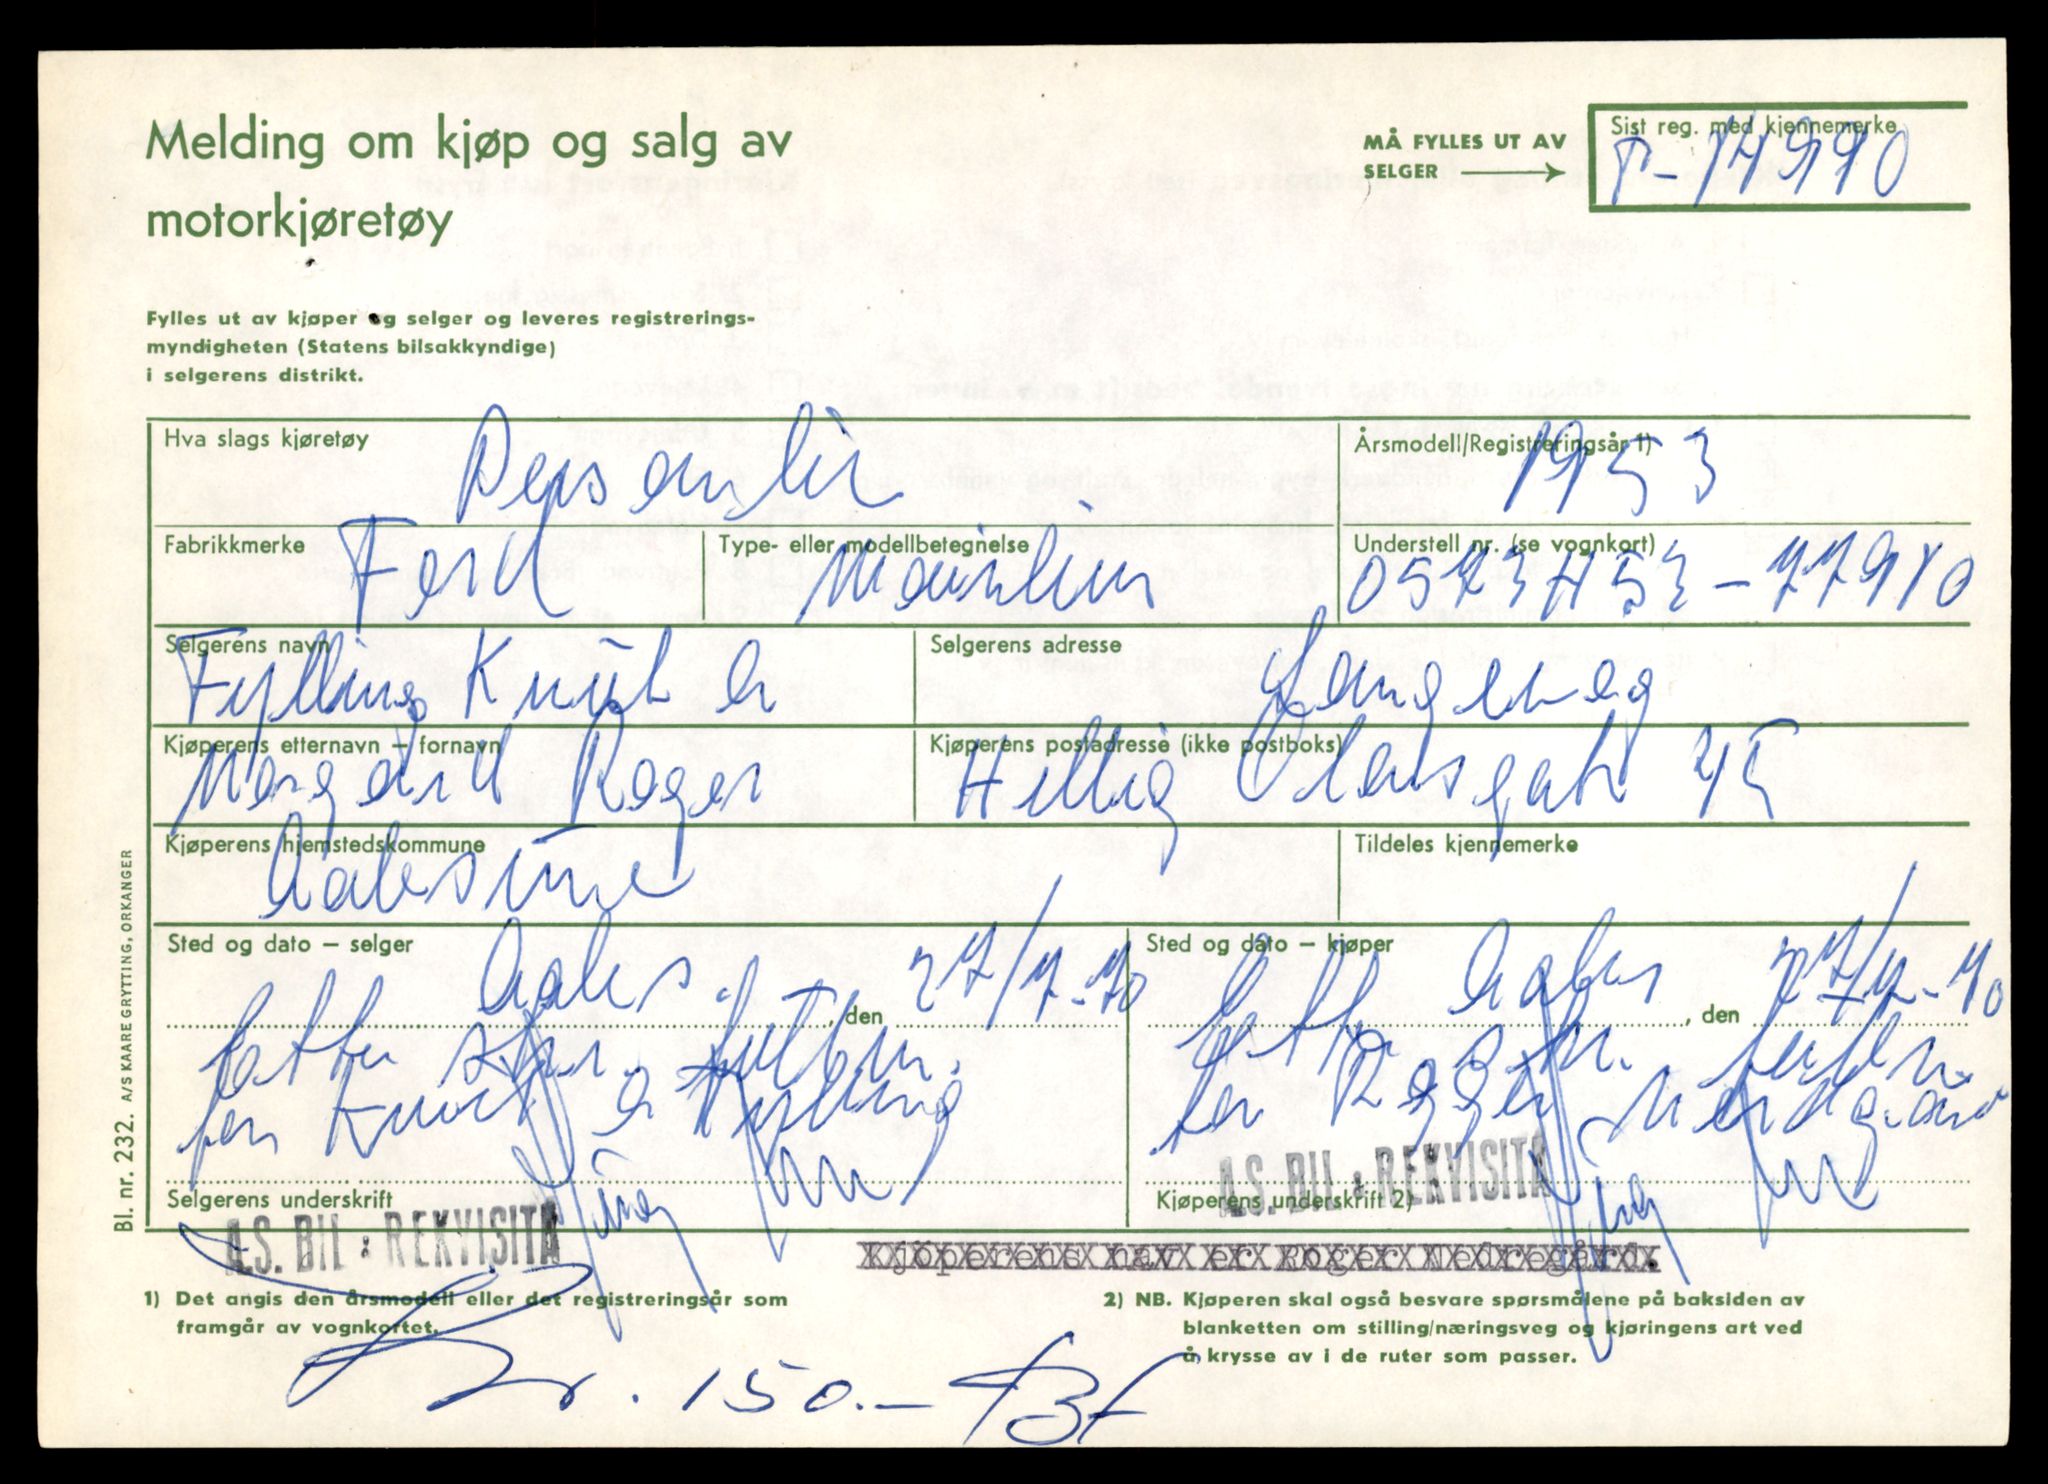 Melding om kjøp og salg av
motorkjøretøy
MÅ FYLLES UT AV
SELGER
Sist reg. med kjennemerke
T-14990
Fylles ut av kjøper og selger og leveres registrerings-
myndigheten (Statens bilsakkyndige)
i selgerens distrikt.
Hva slags kjøretøy
Årsmodell/Registreringsår 1)
1953
Fabrikkmerke
Ford
Type- eller modellbetegnelse
Understell nr. (se vognkort)
Selgerens navn
Fylling Knut
Selgerens adresse
Langevåg
Kjøperens etternavn – fornavn
Roger
Kjøperens postadresse (ikke postboks)
Hellig Olavsgate 45
Kjøperens hjemstedskommune
Aalesund
Tildeles kjennemerke
Sted og dato – selger
Aales. , den 27/7-70
etter skr. fullm.
for Knut Fylling
Selgerens underskrift
A.S. BIL : REKVISITA
Sted og dato – kjøper
Aales , den 27/7-70
etter skr. fullm.
for Roger
A.S. BIL : REKVISITA
Kjøperens underskrift 2)
Kjøperens nav er Roger Nedregård.
1) Det angis den årsmodell eller det registreringsår som
framgår av vognkortet.
2) NB. Kjøperen skal også besvare spørsmålene på baksiden av
blanketten om stilling/næringsveg og kjøringens art ved
å krysse av i de ruter som passer.
Kr. 150.-
Bl. nr. 232. A/S KAARE GRYTTING, ORKANGER